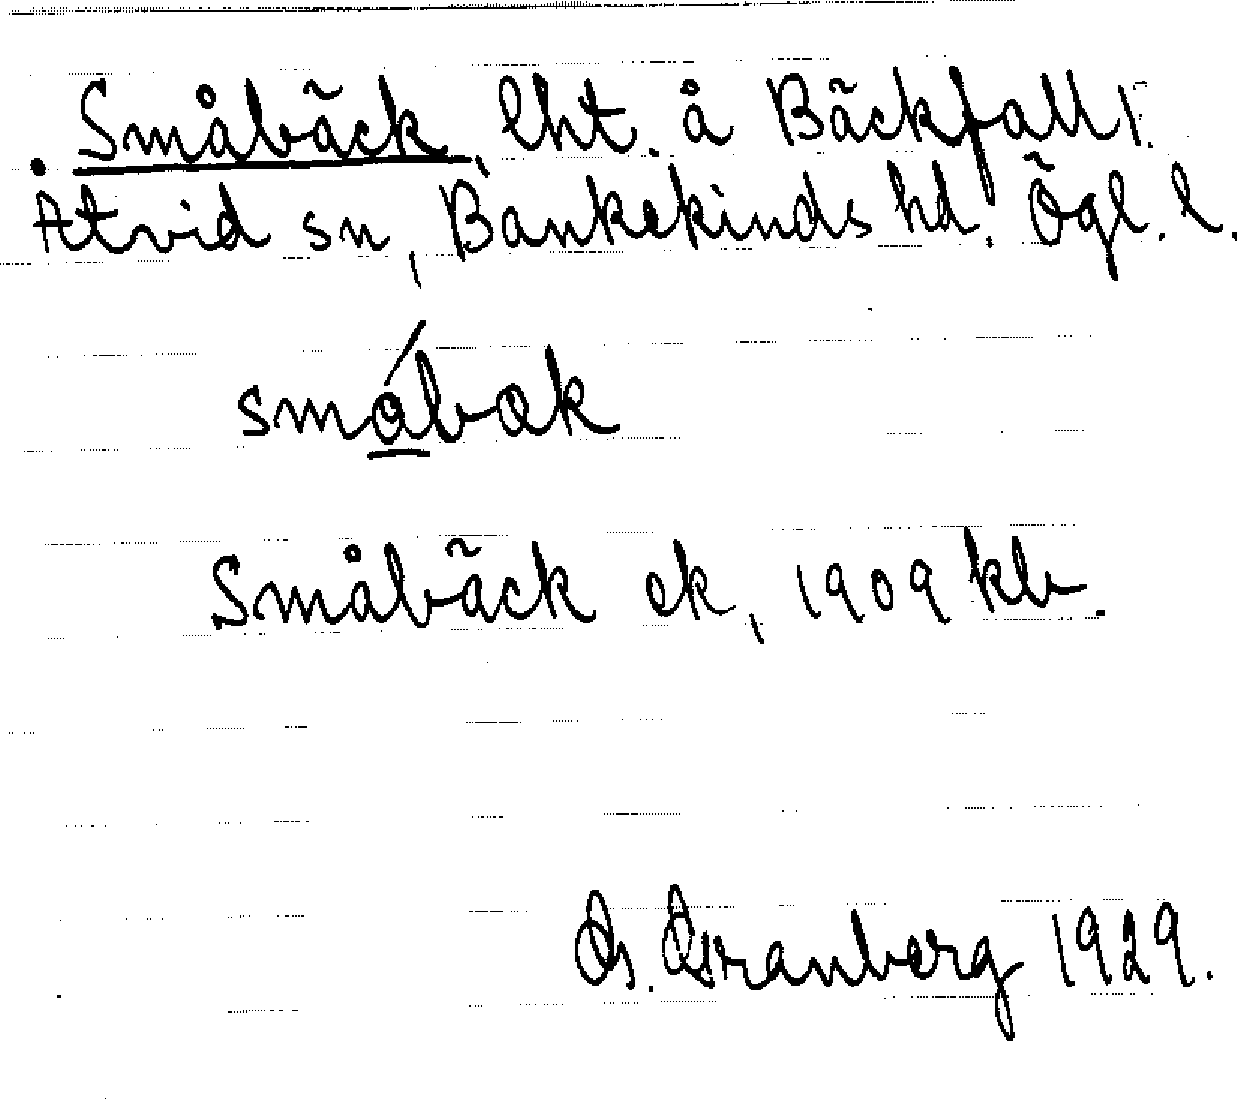 Småbäck, lht. å Bäckfall 1.
Åtvid sn, Bankekinds hd. Ögl. l.
småbak
Småbäck ek, 1909 kb.
G. Granberg 1929.